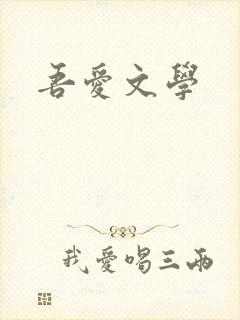 吾愛文學
我愛唱三兩